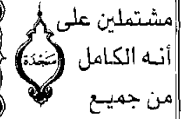 مشتملين على
أنه الكامل
سَجْدَة
من جميع